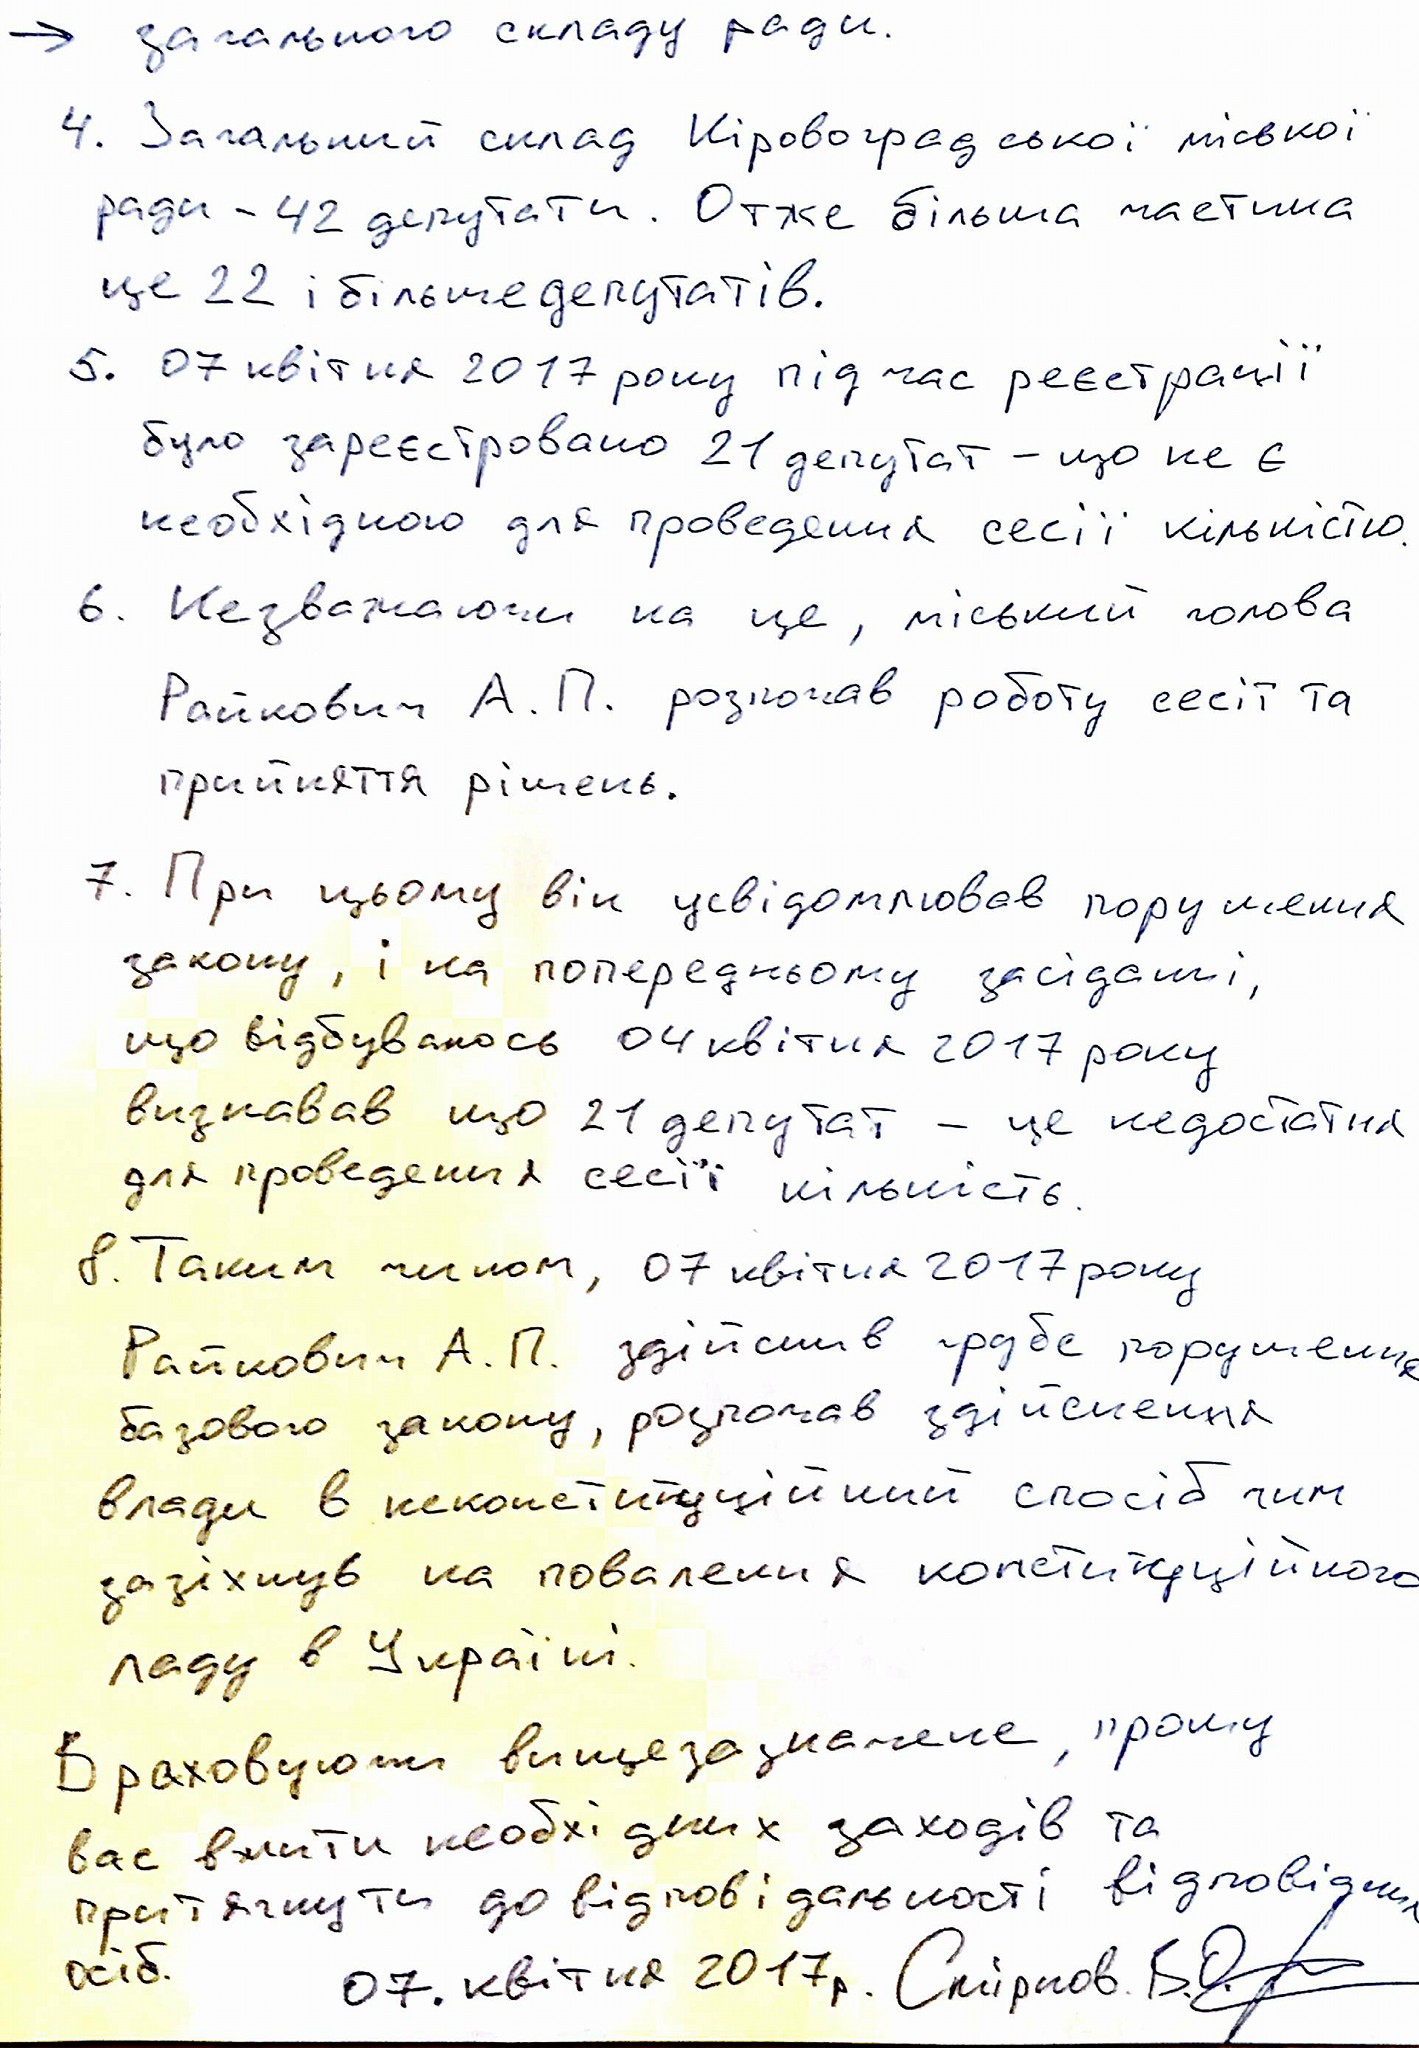 → загального складу ради.
4. Загальний склад Кіровоградської міської
ради - 42 депутати. Отже більша частина
це 22 і більше депутатів.
5. 07 квітня 2017 року під час реєстрації
було зареєстровано 21 депутат - що не є
необхідною для проведення сесії кількістю.
6. Незважаючи на це, міський голова
Райкович А.П. розпочав роботу сесії та
прийняття рішень.
7. При цьому він усвідомлював порушення
закону, і на попередньому засіданні,
що відбувалось 04 квітня 2017 року
визнавав що 21 депутат - це недостатня
для проведення сесії кількість.
8. Таким чином, 07 квітня 2017 року
Райкович А.П. здійснив грубе порушення
базового закону, розпочав здійснення
влади в неконституційний спосіб чим
зазіхнув на повалення конституційного
ладу в Україні.
Враховуючи вищезазначене, прошу
вас вжити необхідних заходів та
притягнути до відповідальності відповідних
осіб.
07. квітня 2017р. Смірнов В.О.